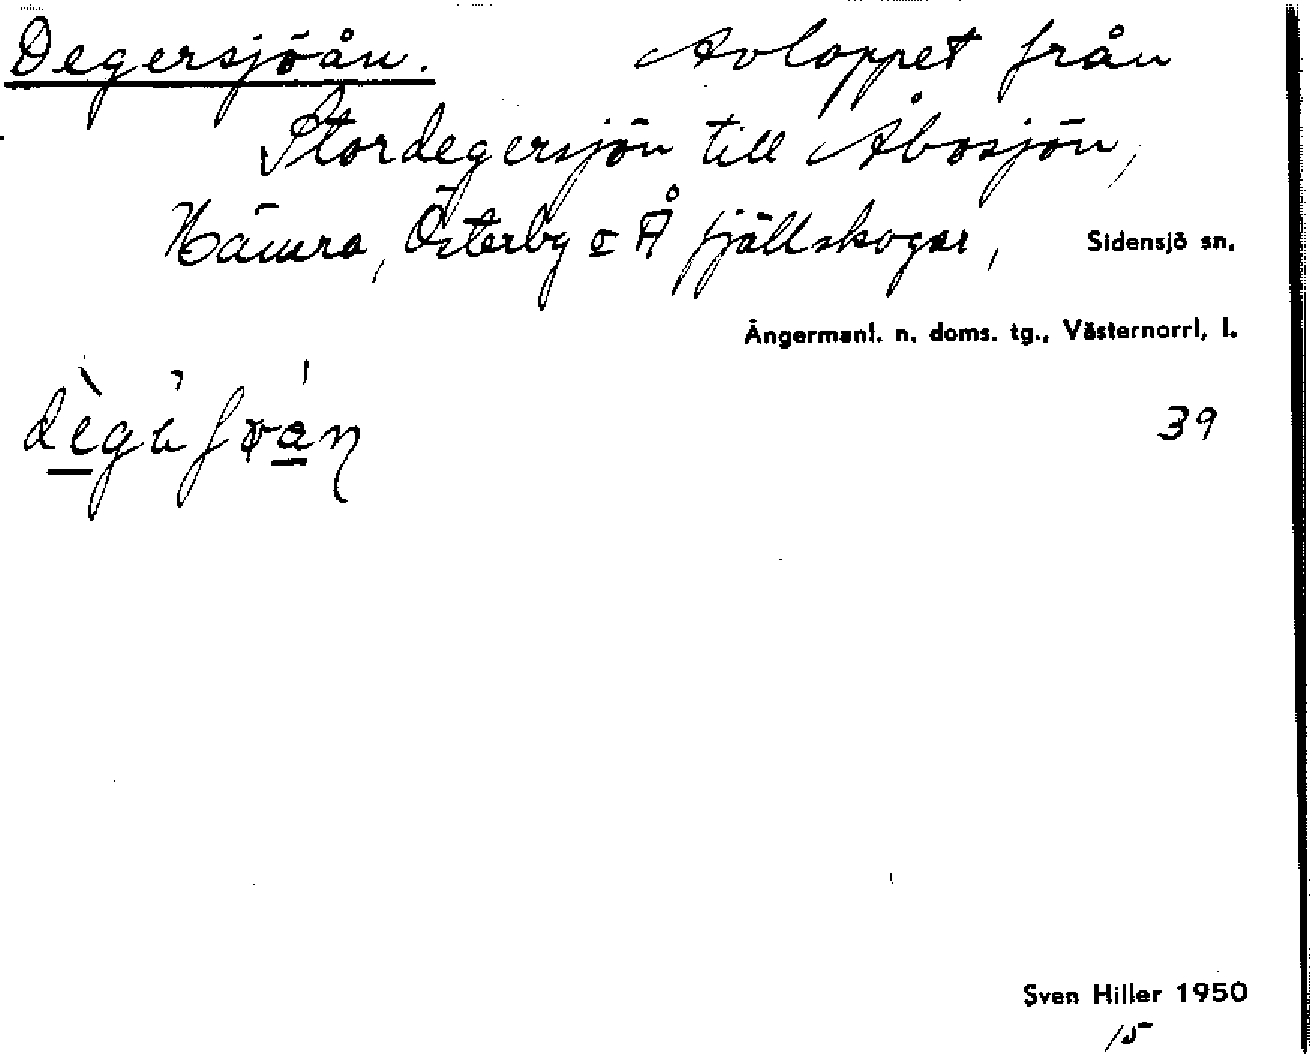 Degersjöån. Avloppet från
Stordegersjön till Åbosjön,
Hämra, Österby o Å fjällskogar, Sidensjö sn.
Ångermanl. n. doms. tg., Västernorrl. l.
39
Sven Hiller 1950
15